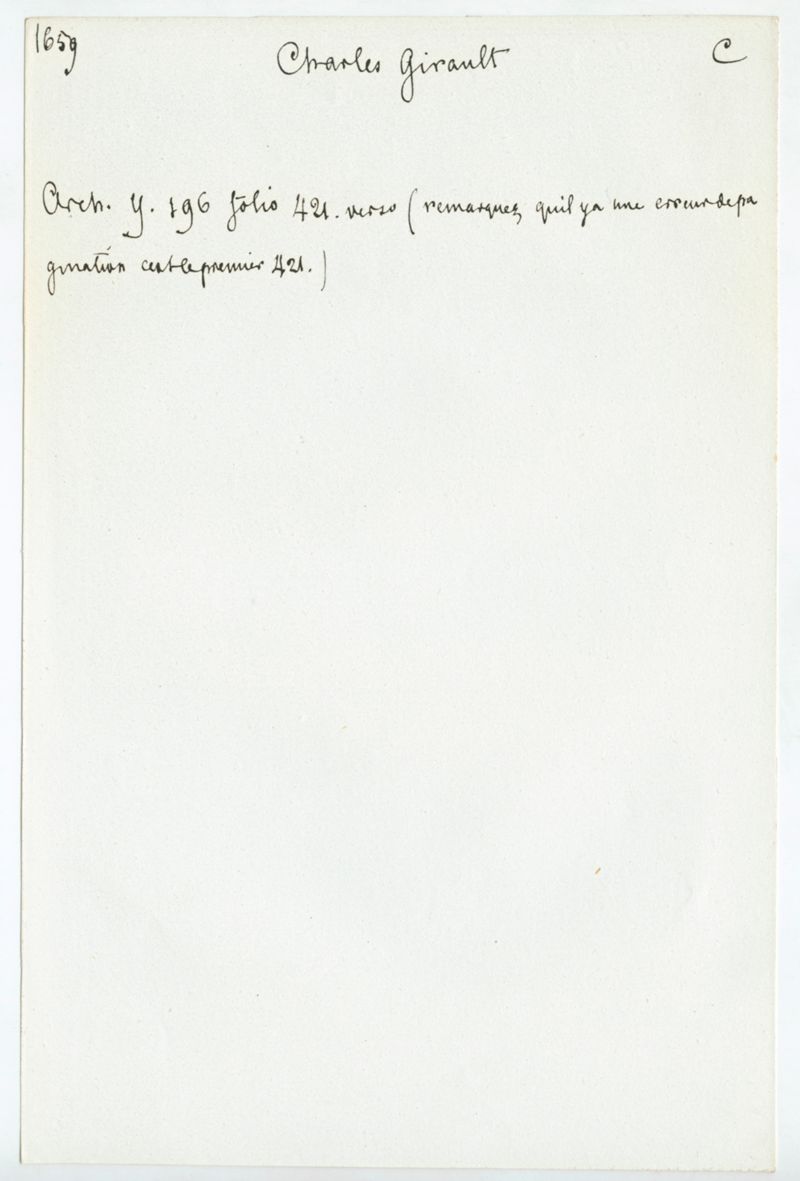 1659
Charles Girault
C
Arch. Y. 196 folio 421. verso (remarquez quil ya une erreur de pa
gination cest le premier 421.)